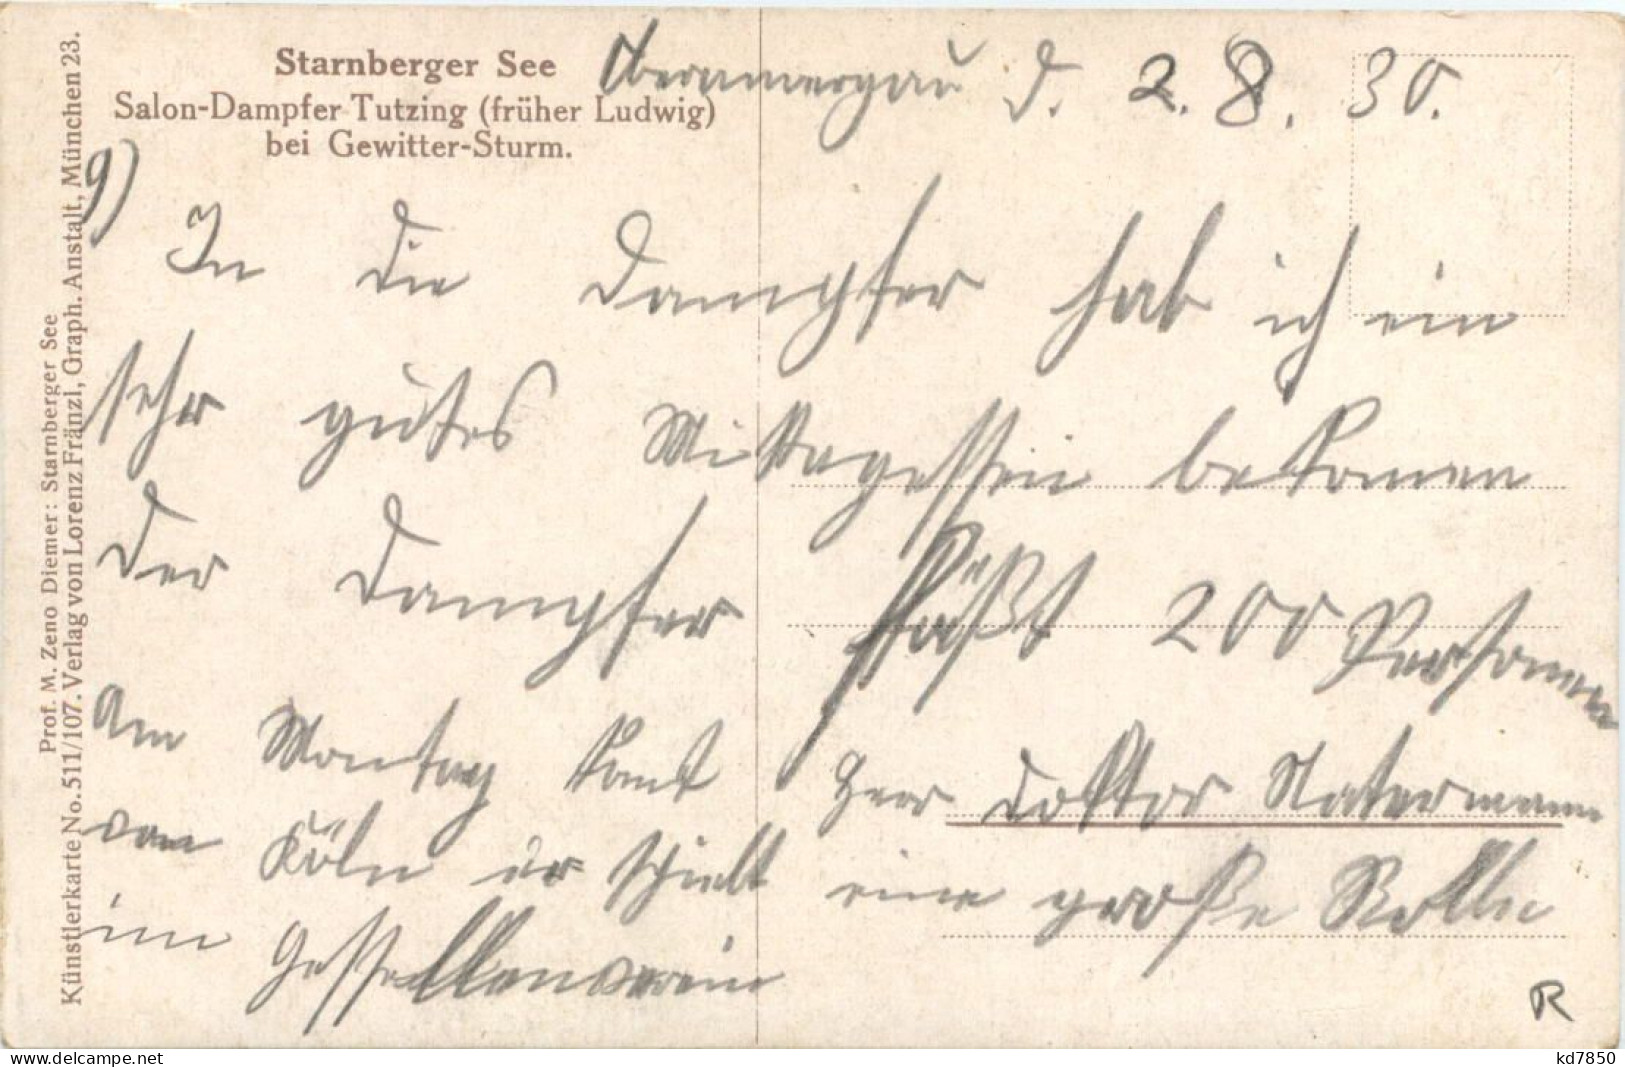 Starnberger See
Salon-Dampfer Tutzing (früher Ludwig)
bei Gewitter-Sturm.
Oberammergau d. 2. 8. 30.
9)
In die Dampfer hab ich ein
sehr gutes Mittagessein bekomen
Der Dampfer fäßt 200 Personen
Am Montag komt Herr Doktor Natermann
von Köln er spielt eine große Rolle
im Gessellenverein
Prof. M. Zeno Diemer: Starnberger See
Künstlerkarte No. 511/107. Verlag von Lorenz Fränzl, Graph. Anstalt, München 23.
R
www.delcampe.net
kd7850